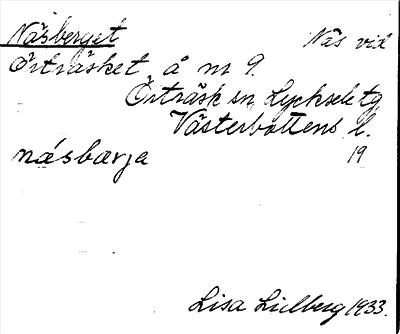 Näsberget Näs vid
Örträsket å nr 9.
Örträsk sn Lycksele tg
Västerbottens l.
näsbærja 19
Lisa Lidberg 1933.